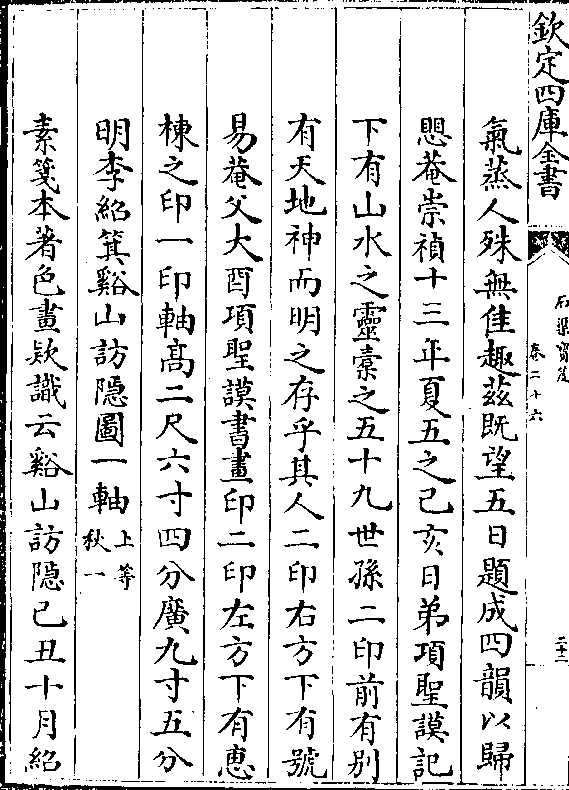 欽定四庫全書
石渠寳笈
卷二十六
二十二
氣蒸人殊無佳趣兹既望五日題成四韻以歸
愳菴崇禎十三年夏五之己亥日弟項聖謨記
下有山水之靈橐之五十九世孫二印前有别
有天地神而明之存乎其人二印右方下有號
易菴父大酉項聖謨書畫印二印左方下有惠
棟之印一印軸髙二尺六寸四分廣九寸五分
明李紹箕谿山訪隠圖一軸上等秋一
素箋本著色畫欵識云谿山訪隠己丑十月紹